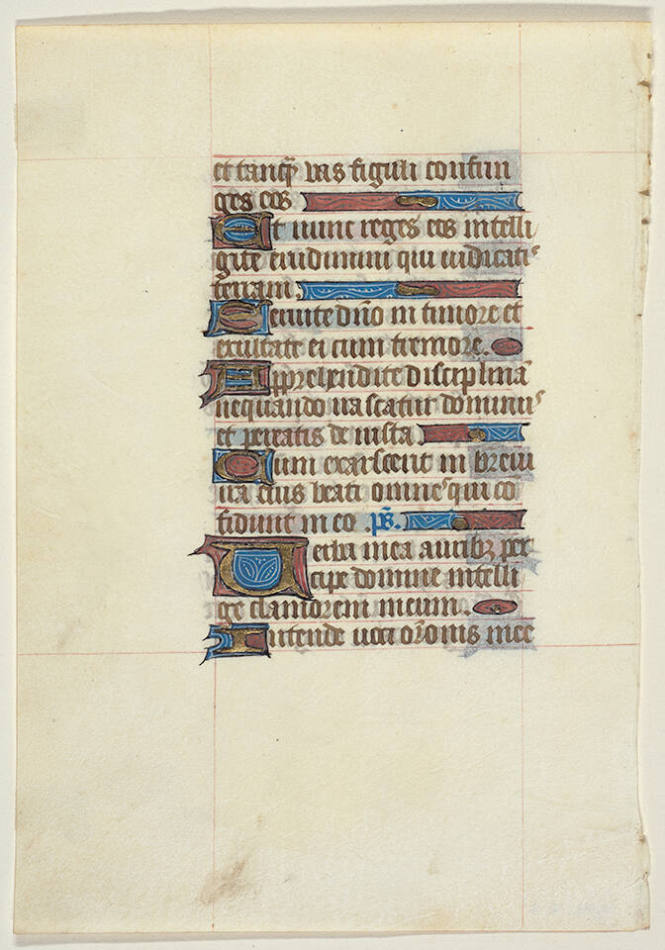 et tanq̃ vas figuli confrin
ges eos
Et nunc reges eos intelli
gite erudimini qui iudicatis
terram.
Seruite dño in timore et
exultate ei cum tremore.
Apprehendite disciplinã
nequando irascatur dominus
et pereatis de iusta
Cum exarserit in breui
ira eius beati omnes qui co
fidunt in eo . ps̃.
Uerba mea auribꝫ per
cipe domine intelli
ge clamorem meum.
Intende uoci orõnis mee